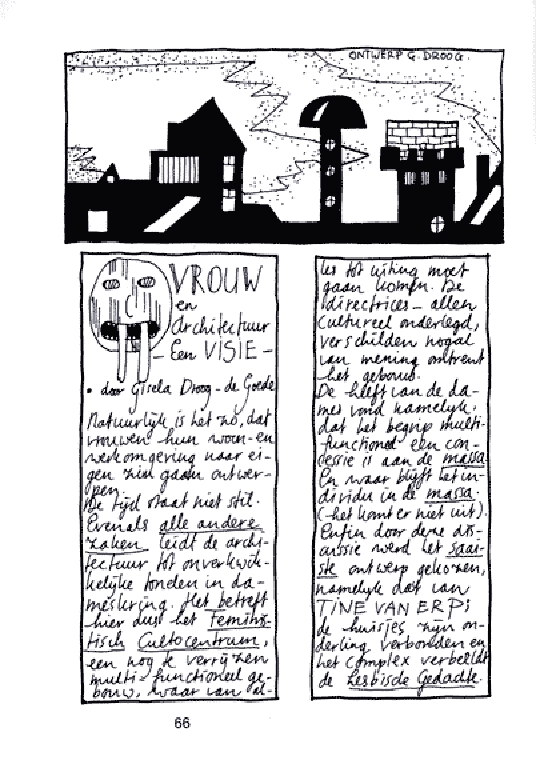 ONTWERP G. DROOG.
VROUW
en
Architectuur
- Een VISIE -
• door Gisela Droog - de Goede
Natuurlijk is het zo, dat
vrouwen hun woon- en
werkomgeving naar ei-
gen zin gaan ontwer-
pen.
De tijd staat niet stil.
Evenals alle andere
zaken leidt de archi-
tectuur tot onverkwik-
kelijke tonelen in da-
meskring. Het betreft
hier dus het Feminis-
tisch Cultocentrum,
een nog te verrijzen
multi-functioneel ge-
bouw, waar van al-
les tot uiting moet
gaan komen. De
directrices - allen
cultureel onderlegd,
verschilden nogal
van mening omtrent
het gebouw.
De helft van de da-
mes vond namelijk,
dat het begrip multi-
functioneel een con-
cessie is aan de massa.
En waar blijft het in-
dividu in de massa.
(het komt er niet uit).
Enfin door deze dis-
cussie werd het saai-
ste ontwerp gekozen,
namelijk dat van
TINE VAN ERP:
de huisjes zijn on-
derling verbonden en
het complex verbeeldt
de Lesbische Gedachte.
66